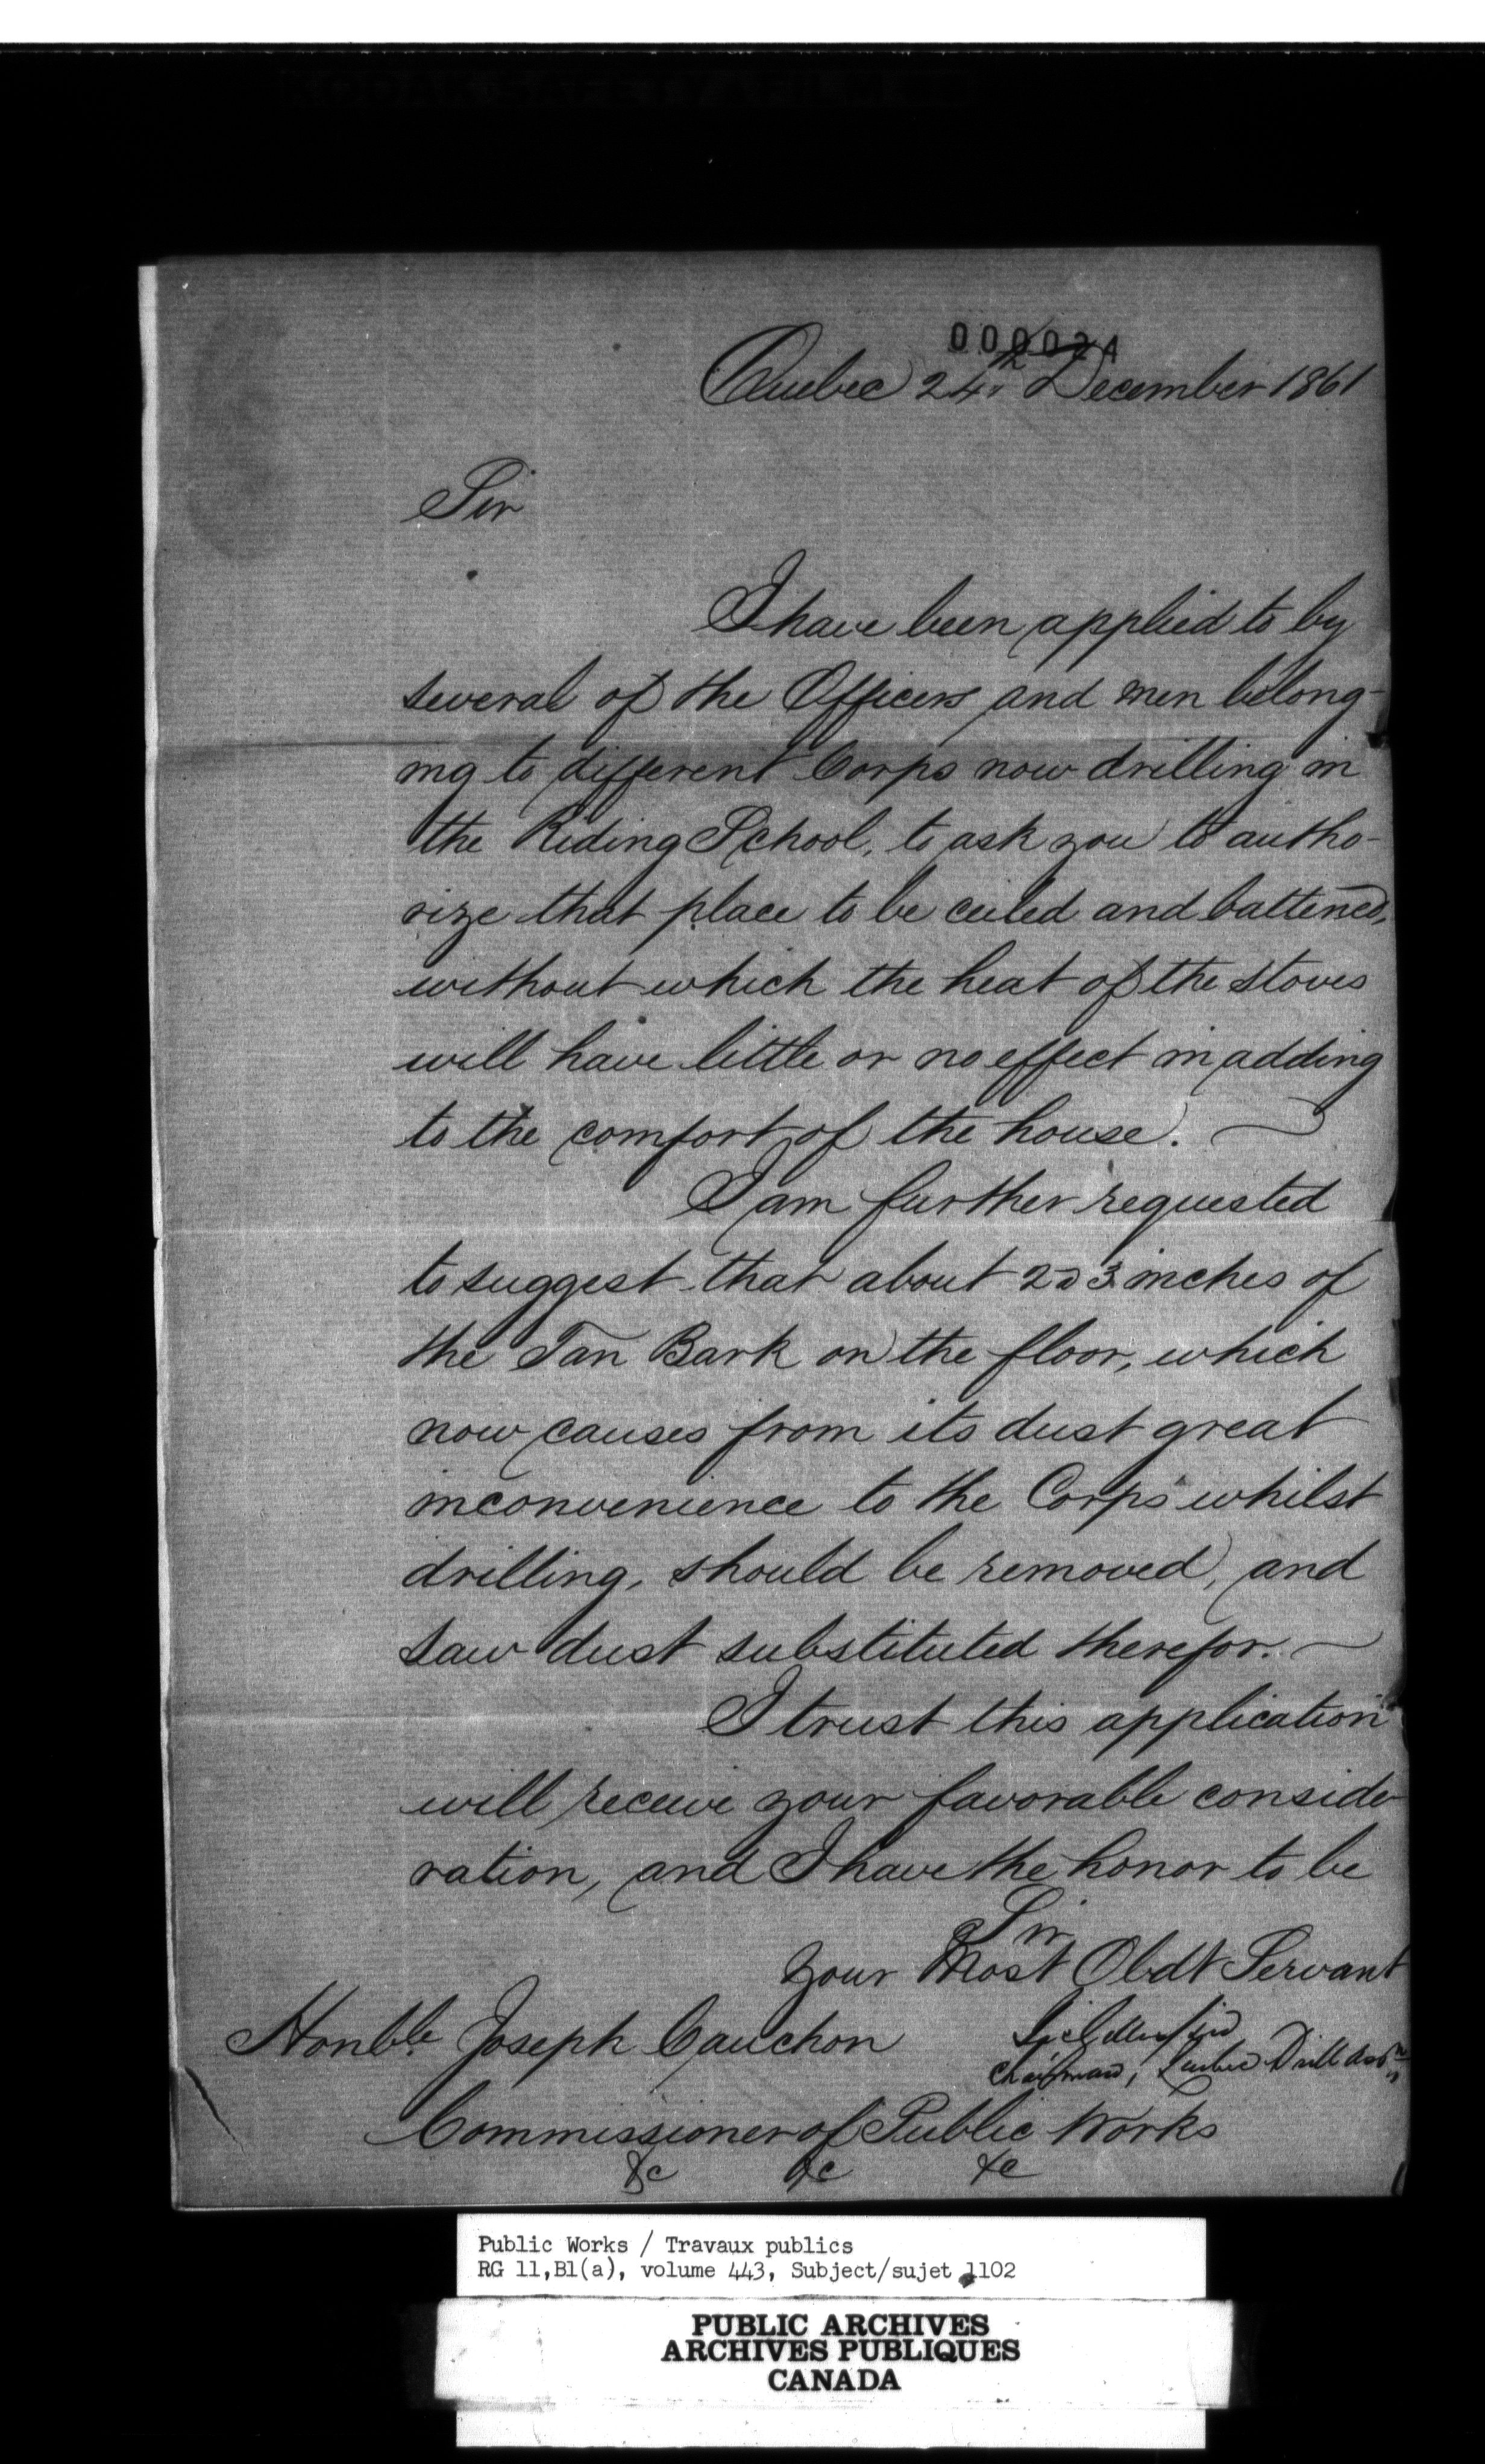 000024
Quebec 24th December 1861
Sir
I have been applied to by
several of the Officers and men belong-
ing to different Corps now drilling in
the Riding School, to ask you to autho-
rize that place to be ceiled and battened,
without which the heat of the stoves
will have little or no effect in adding
to the comfort of the house.
I am further requested
to suggest that about 2 @ 3 inches of
the Tan Bark on the floor, which
now causes from its dust great
inconvenience to the Corps whilst
drilling, should be removed, and
saw dust substituted therefor.
I trust this application
will receive your favorable conside-
ration, and I have the honor to be
Sir
Your Most Obdt Servant
Honble Joseph Cauchon
Chairman, Quebec Drill Assn
Commissioner of Public Works
&c &c &c
Public Works / Travaux publics
RG 11,B1(a), volume 443, Subject/sujet 1102
PUBLIC ARCHIVES
ARCHIVES PUBLIQUES
CANADA